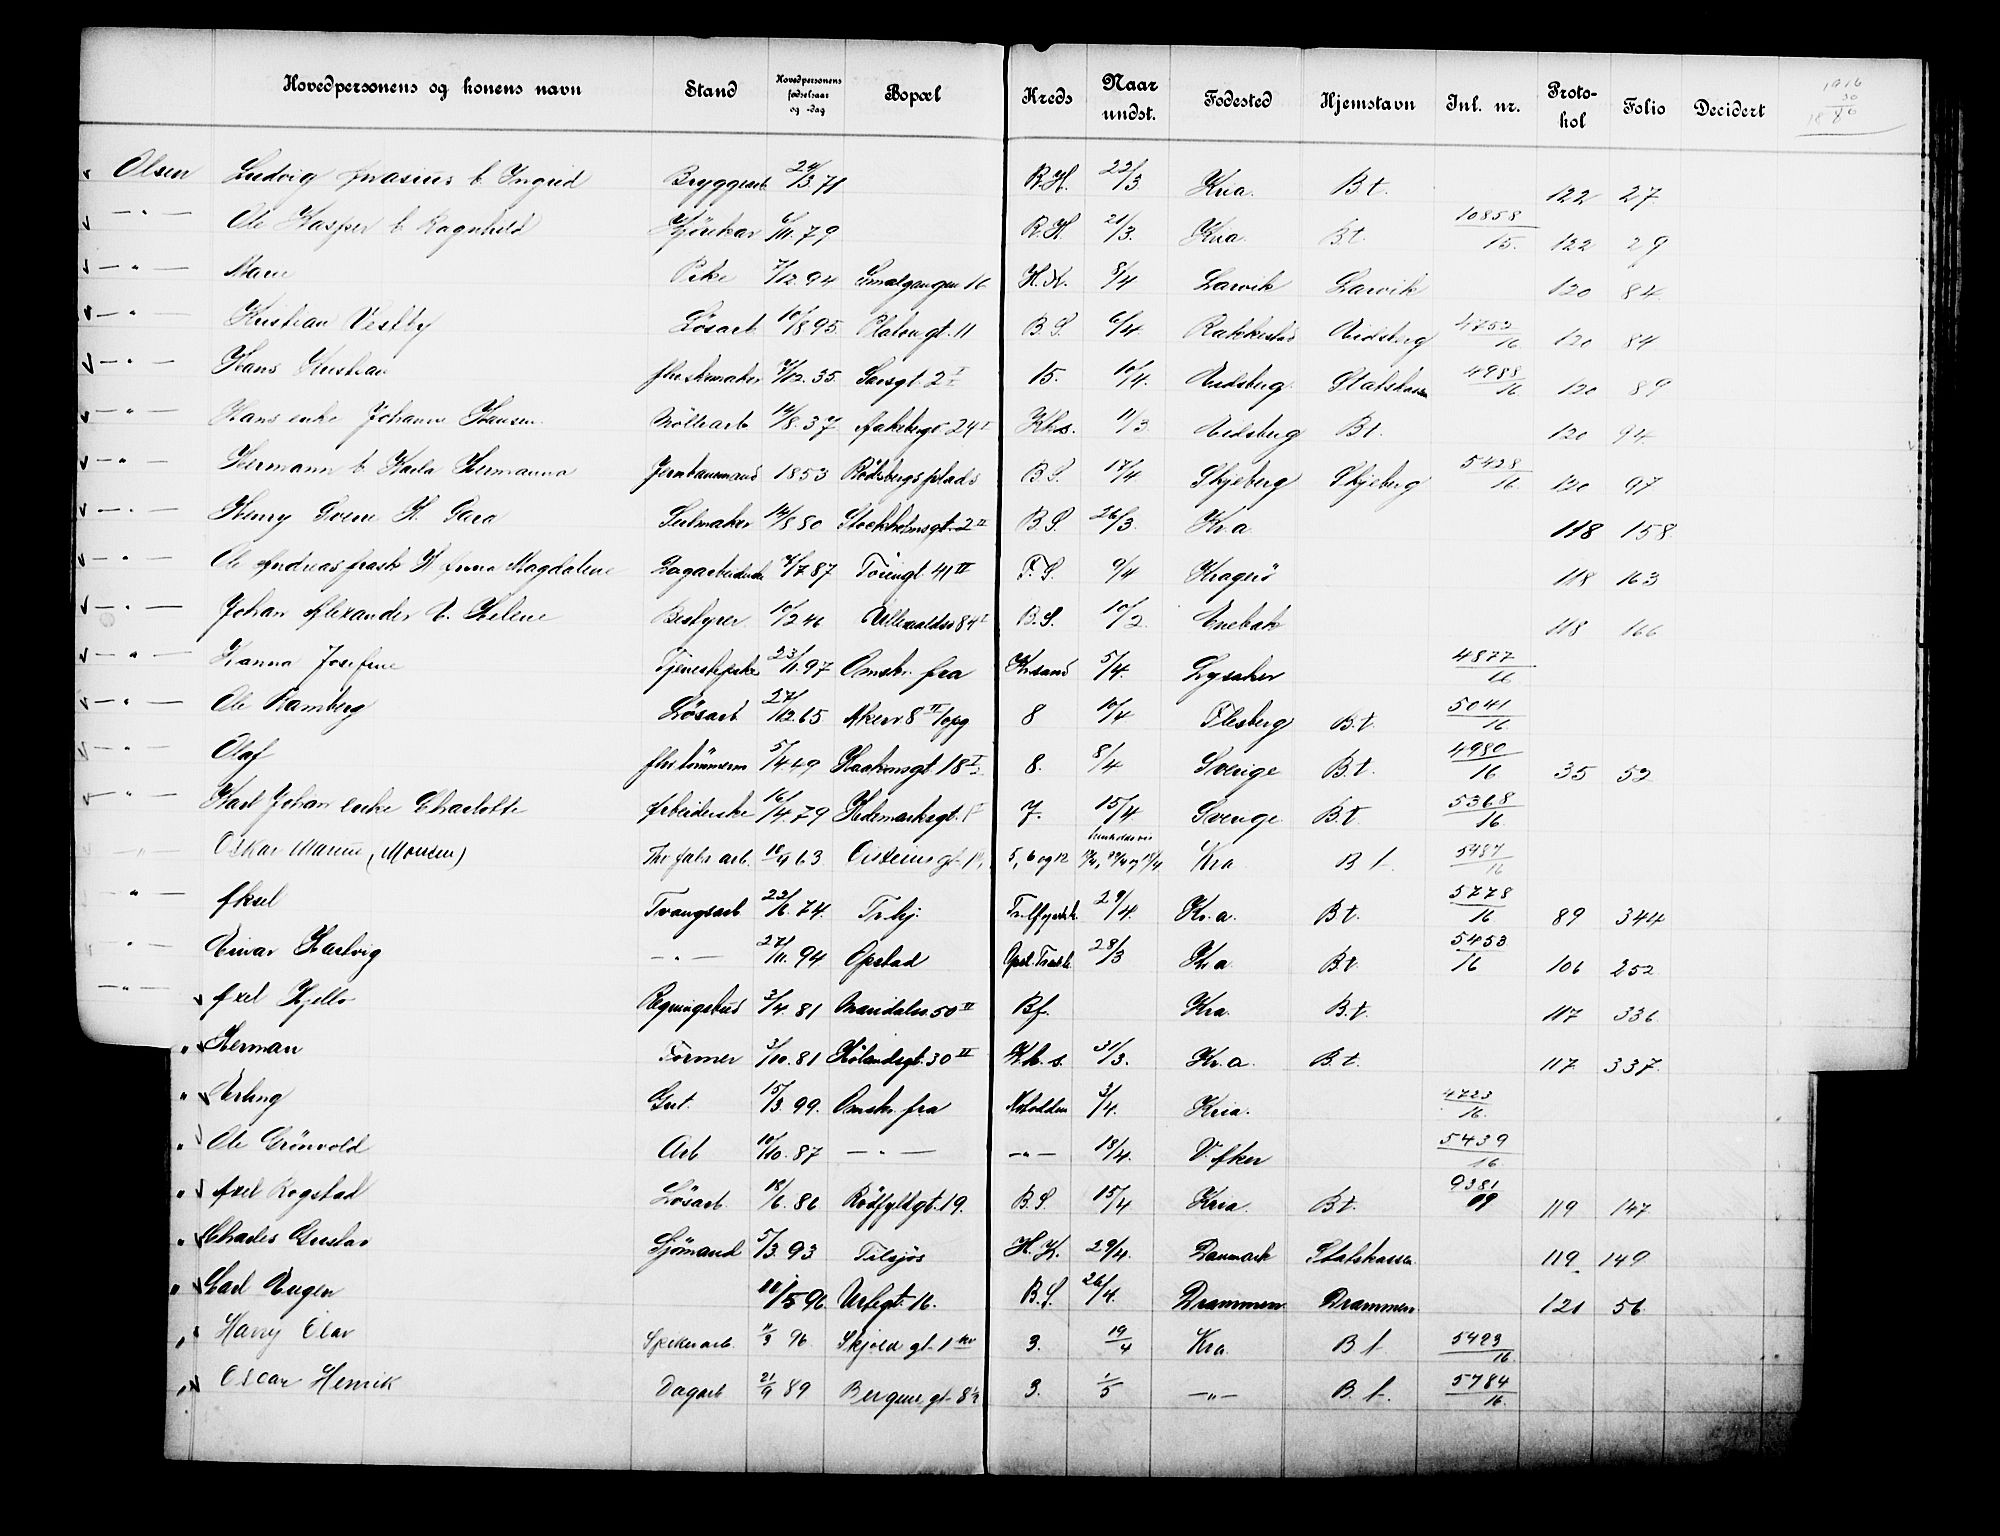 Hovedpersonens og konens navn Stand Hovedpersonens fødselsaar og -dag Bopæl Kreds Naar undst. Fødested Hjemstavn Inl. nr. Proto-kol Folio Decidert 1916
Olsen Ludvig b Ingrid 24/3 71 R.H. 22/3 Kria. Bt. 122 27
— " — Ole Kasper b Ragnhild 6/11. 79 R.H. 21/3. Kria. Bt. 10858/15. 122 29
— " — Marie 7/12 94 Smalgangen 16 H.N. 8/4 Larvik Larvik 120 84
— " — Kristian Vestby Løsarb 10/8 95. Platougt. 11 B.S. 6/4 Rakkestad Eidsberg 4752/16 120 84
— " — Hans Kristian 7/12. 35. Sarsgt. 2 I 15. 10/4. Eidsberg Statskassen 4988/16 120 89
— " — Hans enke Johanne Hansen Møllearb 14/8. 37 Aakebergv 24 I Khs. 11/3 Eidsberg Bt. 120 94
— " — Hermann b Karla Hermanna Jernbanemand 1853 Rodeløkkens plads B.S. 17/4 Skjeberg Skjeberg 5428/16 120 97
— " — Henry Sverre H. Seilmaker 14/8 80 Stockholmsgt. 2 II B.S. 26/3. Kr.a 118 158
— " — Ole Andreas H Anna Magdalene 4/7 87 41 IV F.S. 9/4 Kragerø 118 163
— " — Johan Alexander b. Helene Bestyrer 10/2 46 Ullevaalsv 84 I B.S. 10/2. Enebak 118 166
— " — Hanna Josefine Tjenestepike 23/11. 97 Omskr. fra Krsand 5/4. Lysaker 4877/16
— " — Ole Ramberg Løsarb 27/12. 65 Akersv 8 II opg 8 10/4 Flesberg B.t. 5041/16
— " — Olaf 5/4. 49 Haakonsgt. 18 I 8. 8/4 Sverige B.t. 4980/16 35 52
" Karl Johan enke Charlotte Arbeiderske 16/4. 79 Hedemarksgt. 7. 15/4 Sverige B.t. 5368/16.
" Oskar Marius (Monsen) 10/9 63 gt. 5, 6 og 12 Kra B f. 5487/16
" Aksel Tvangsarb 22/6. 74. Tr.hj. 29/4. Kr.a. Bt. 5778/16 89 344
" Einar Hartvig — " — 27/11. 94 Opstad 28/3 Kr.a Bt. 5453/16 106 252
— " — Axel Kjello Regningsbud 3/4. 81 Maridalsv 50 II Bf. Kra. B.t. 117 336.
" Herman Former 3/10. 81 Hølandsgt. 30 II K.h.s. 31/3. Kr.a. B.t. 117 337.
" Erling Gut. 15/3. 99. Omskr. fra Notodden 3/4. Kria. 4723/16.
" Ole Grönvold Arb 10/10. 87 — " — — " — 18/4. V. Aker 5439/16.
" Axel Rogstad Løsarb. 18/6. 86 Rødfyldgt. 19. B.S. 15/4 Kria. Bt. 9381/09 119 147
" Charles Gustav Sjömand 5/3. 93 Tilsjøs H.H. 29/4. Danmark Statskassen 119. 149
" Carl Eugen 10/5 96 Urtegt. 16. B.S. 26/4. Drammen Drammen 121 56
" Harry Olav 11/3 96 Skjold gt. 1 3. 19/4 Kra B f. 5493/16.
" Oscar Henrik Dagarb 21/9 89 Bergens gt. 8 3. 1/5 — " — B. f. 5784/16.